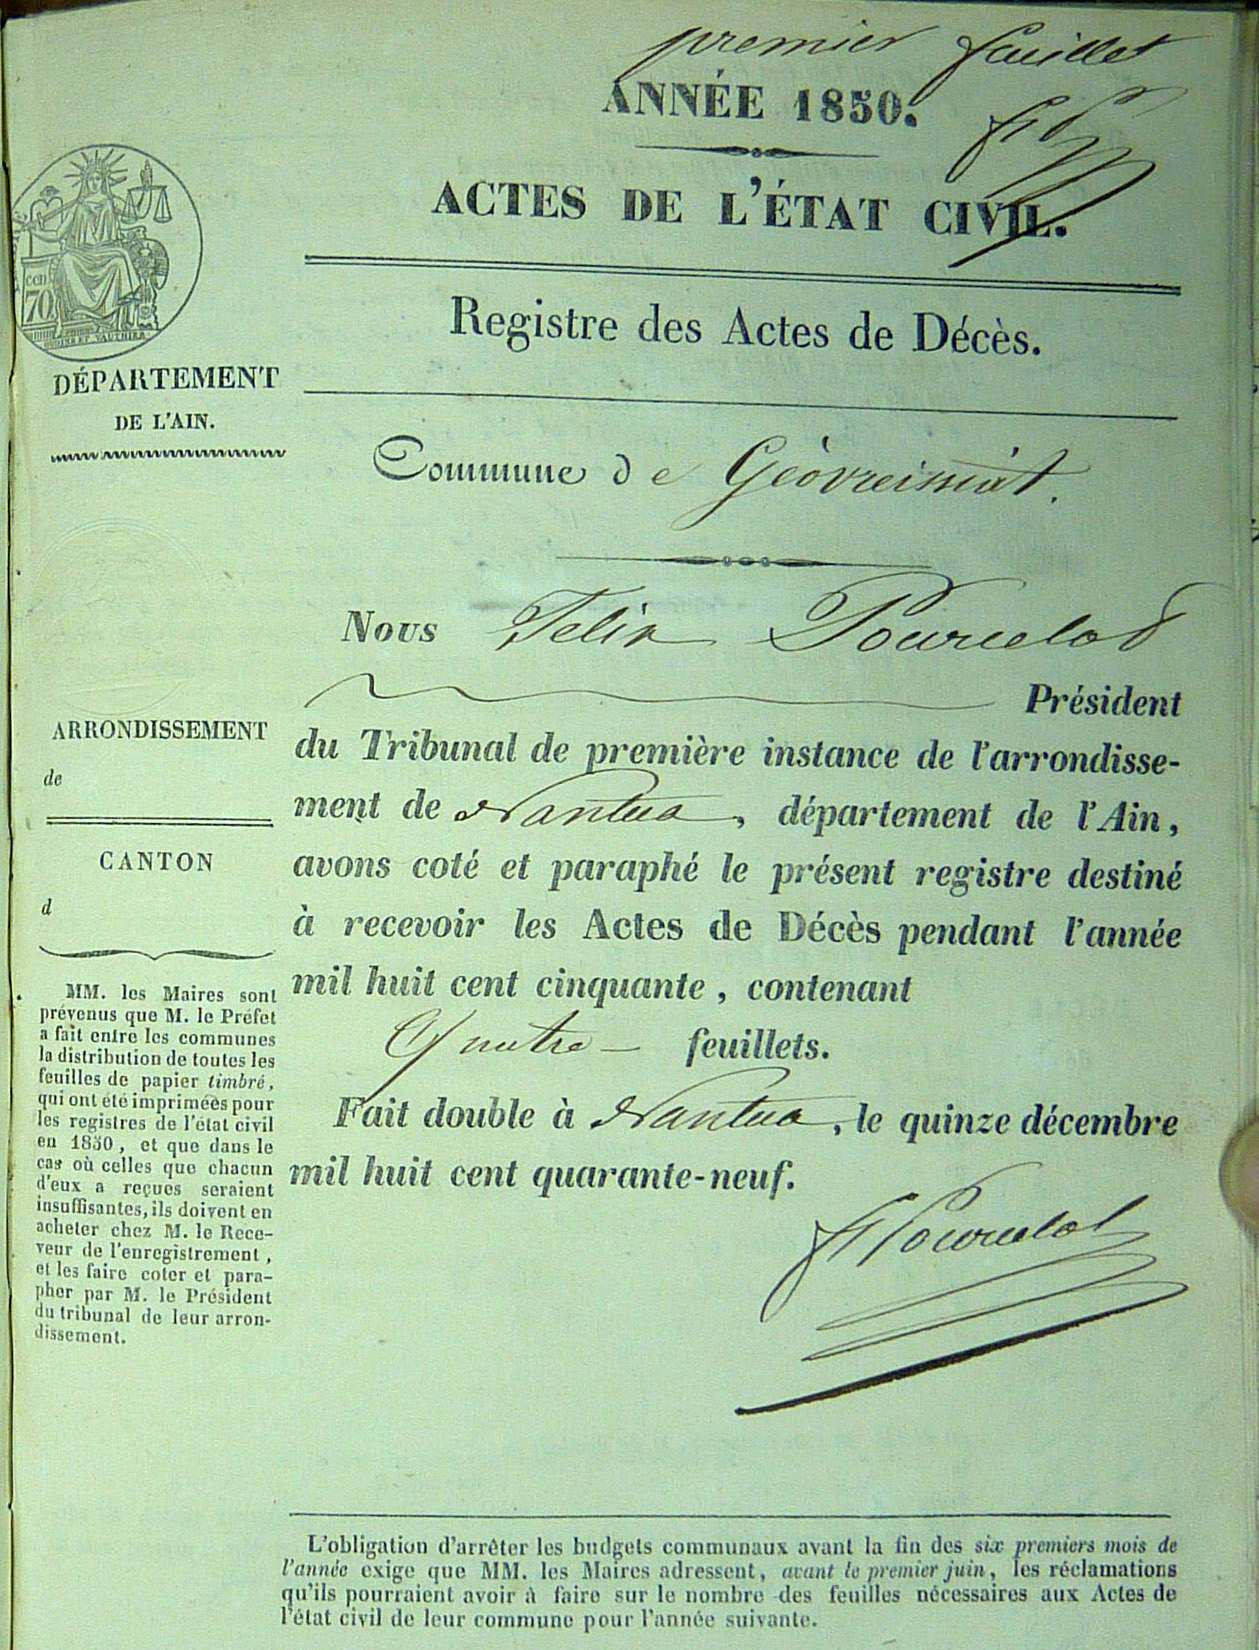 premier feuillet
ANNÉE 1850.
ACTES DE L'ÉTAT CIVIL.
Registre des Actes de Décès.
cen
70
DÉPARTEMENT
DE L'AIN.
Commune de Géovreissiat.
Nous Felix Pourcelot
Président
du Tribunal de première instance de l'arrondisse-
ment de Nantua, département de l'Ain,
avons coté et paraphé le présent registre destiné
à recevoir les Actes de Décès pendant l'année
mil huit cent cinquante, contenant
Quatre feuillets.
Fait double à Nantua, le quinze décembre
mil huit cent quarante-neuf.
F Pourcelot
ARRONDISSEMENT
de
CANTON
d
MM. les Maires sont
prévenus que M. le Préfet
a fait entre les communes
la distribution de toutes les
feuilles de papier timbré,
qui ont été imprimées pour
les registres de l'état civil
en 1850, et que dans le
cas où celles que chacun
d'eux a reçues seraient
insuffisantes, ils doivent en
acheter chez M. le Rece-
veur de l'enregistrement,
et les faire coter et para-
pher par M. le Président
du tribunal de leur arron-
dissement.
L'obligation d'arrêter les budgets communaux avant la fin des six premiers mois de
l'année exige que MM. les Maires adressent, avant le premier juin, les réclamations
qu'ils pourraient avoir à faire sur le nombre des feuilles nécessaires aux Actes de
l'état civil de leur commune pour l'année suivante.